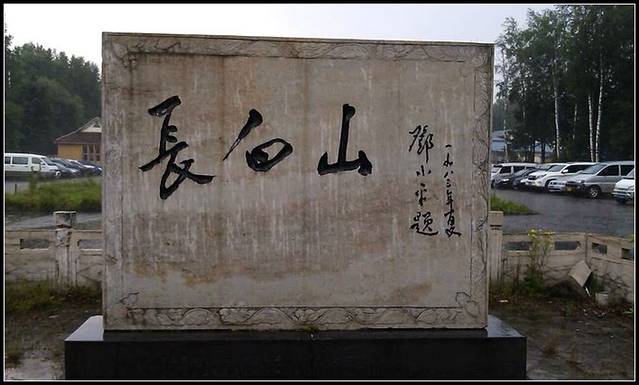 長白山
鄧小平題
一九八三年夏